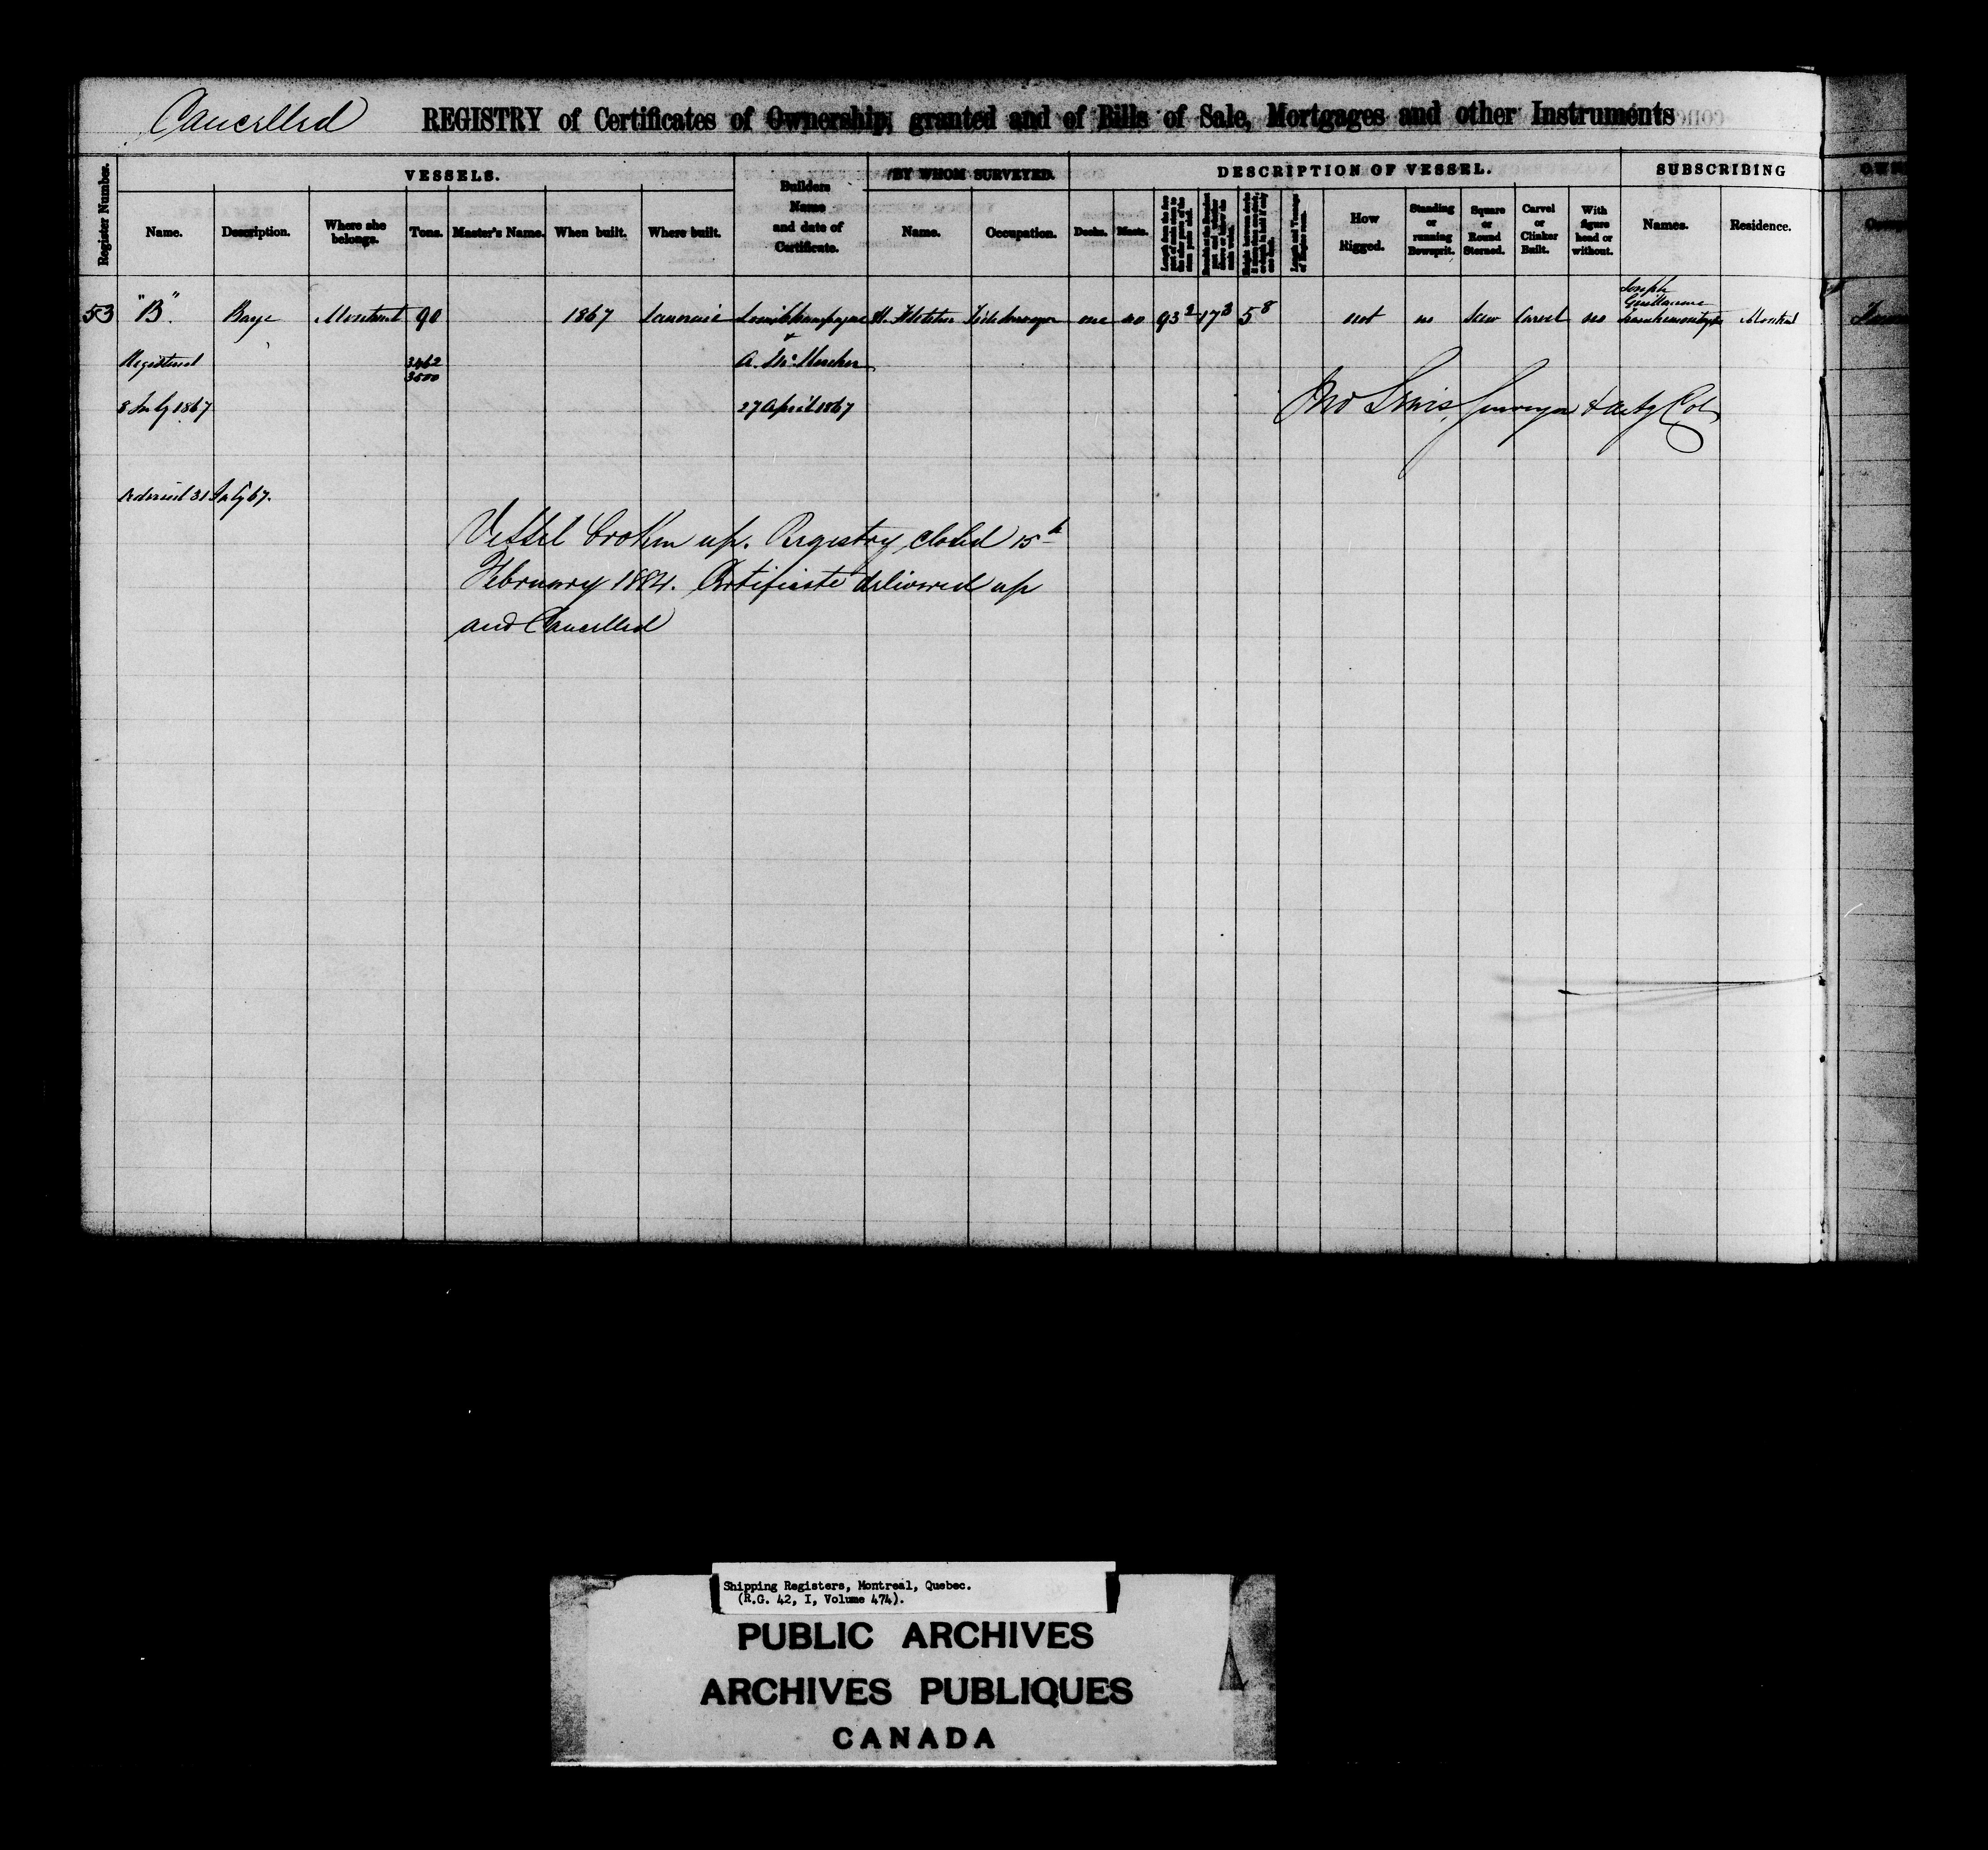 Cancelled
REGISTRY of Certificates of Ownership; granted and of Bills of Sale, Mortgages and other Instruments
Register Number.
VESSELS.
Name.
Description.
Where she belongs.
Tons.
Master's Name.
When built.
Where built.
Builders Name and date of Certificate.
BY WHOM SURVEYED.
Name.
Occupation.
DESCRIPTION OF VESSEL.
Decks.
Masts.
How Rigged.
Standing or running Bowsprit.
Square or Round Sterned.
Carvel or Clinker Built.
With figure head or without.
SUBSCRIBING
Names.
Residence.
53 "B" Barge Montreal 90 1867 Lanoraie Louis Champagne H. Fletcher Tide Surveyor one no 93 2 17 3 5 8 not no Carvel no Joseph Guillaume Montreal
Registered 3462 &
3500 A. Mc
8 July 1867 27 April 1867 Jno Lewis, Surveyor & actg Col
31 July 67.
Vessel broken up. Registry closed 15th
February 1884. Certificate delivered up
and Cancelled
Shipping Registers, Montreal, Quebec.
(R.G. 42, I, Volume 474).
PUBLIC ARCHIVES
ARCHIVES PUBLIQUES
CANADA